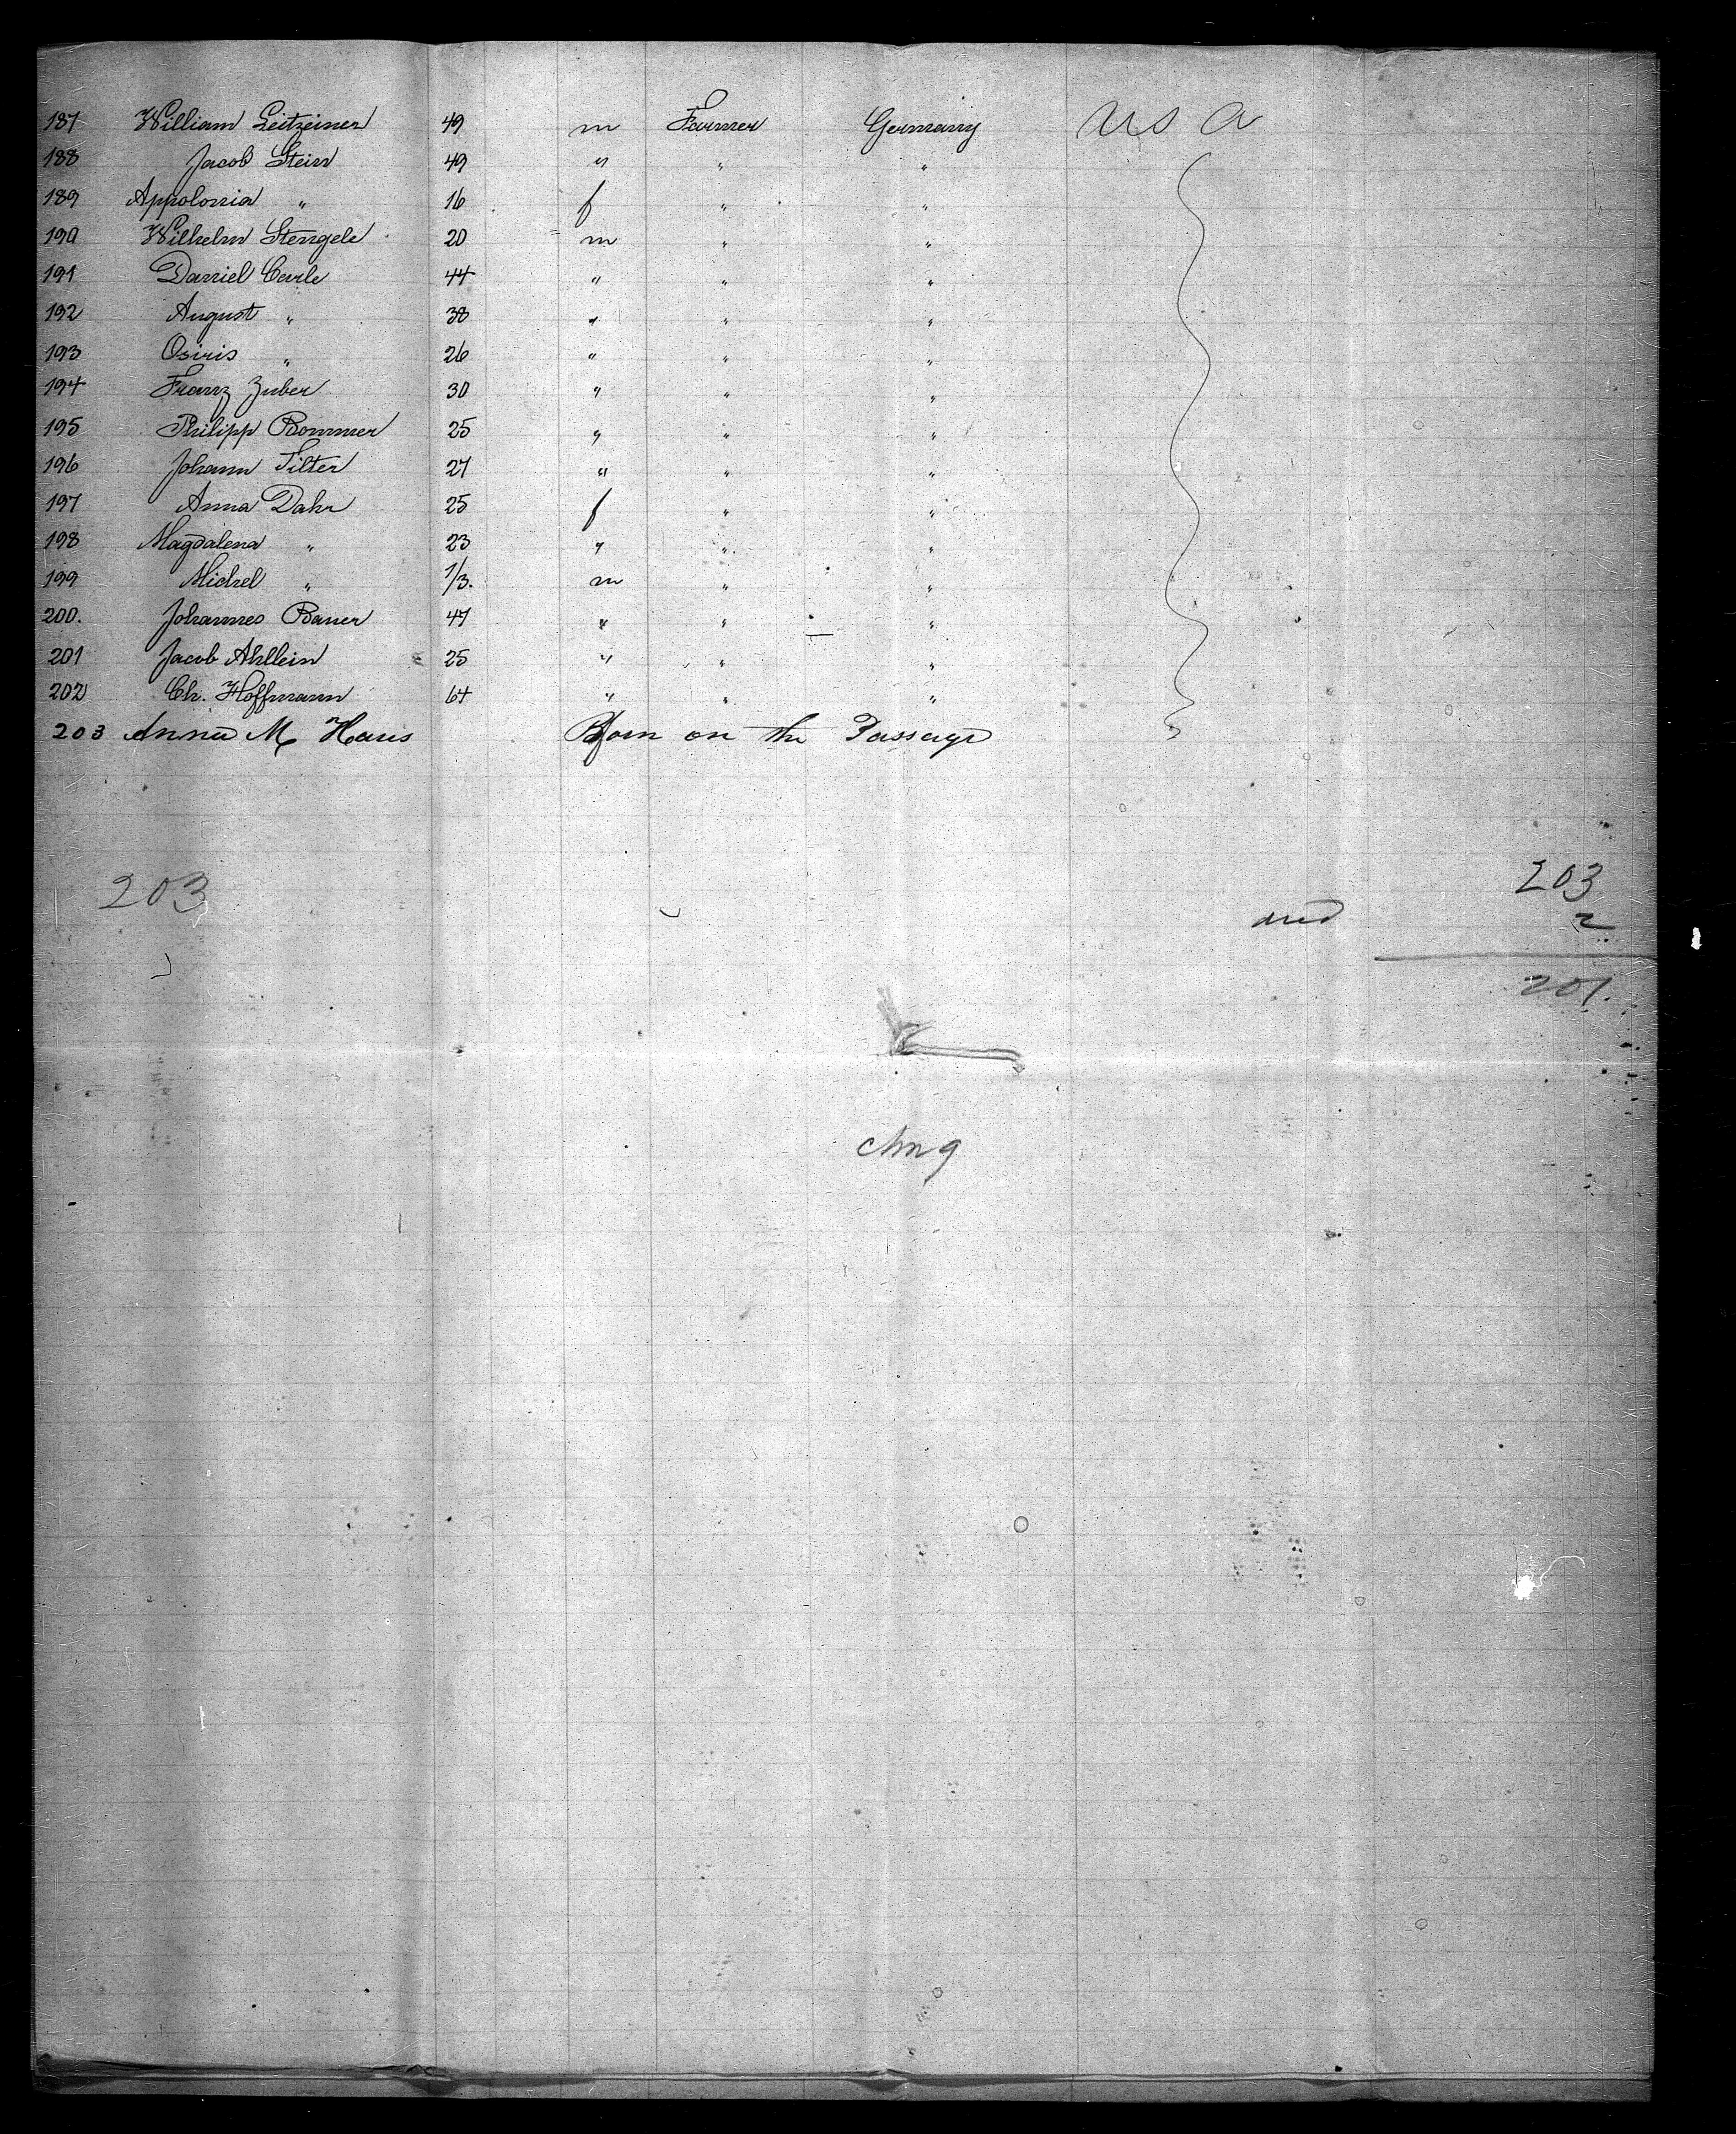 187 William Leitzeiner 49 m Farmer Germany U S A
188 Jacob Stein 49 " " "
189 Appolonia " 16 f " "
190 Wilhelm Stengele 20 m " "
191 Daniel Carle 44 " " "
192 August " 38 " " "
193 Osiris " 26 " " "
194 Franz Zuber 30 " " "
195 Philipp Bommer 25 " " "
196 Johann Tilter 27 " " "
197 Anna Dahr 25 f " "
198 Magdalena " 23 " " "
199 Michel " 1/3. m " "
200. Johannes Bauer 47 " " "
201 Jacob Ahllein 25 " " "
202 Ch. Hoffmann 64 " " "
203 Anna M Haus Born on the Passage
203 203
died 2
201.